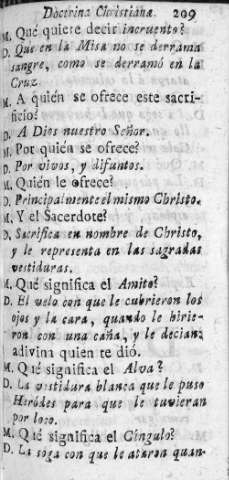 Doctrina Christiana. 209
M. Qué quiere decir incruento?
D. Que en la Misa no se derrama
sangre, como se derramó en la
Cruz.
M. A quién se ofrece este sacri-
ficio?
D. A Dios nuestro Señor.
M. Por quién se ofrece?
D. Por vivos, y difuntos.
M. Quién le ofrece?
D. Principalmente el mismo Christo.
M. Y el Sacerdote?
D. Sacrifica en nombre de Christo,
y le representa en las sagradas
vestiduras.
M. Qué significa el Amito?
D. El velo con que le cubrieron los
ojos y la cara, quando le hirie-
ron con una caña, y le decian:
adivina quien te dió.
M. Qué significa el Alva?
D. La vestidura blanca que le puso
Heródes para que le tuvieran
por loco.
M. Qué significa el Cíngulo?
D. La soga con que le ataron quan-